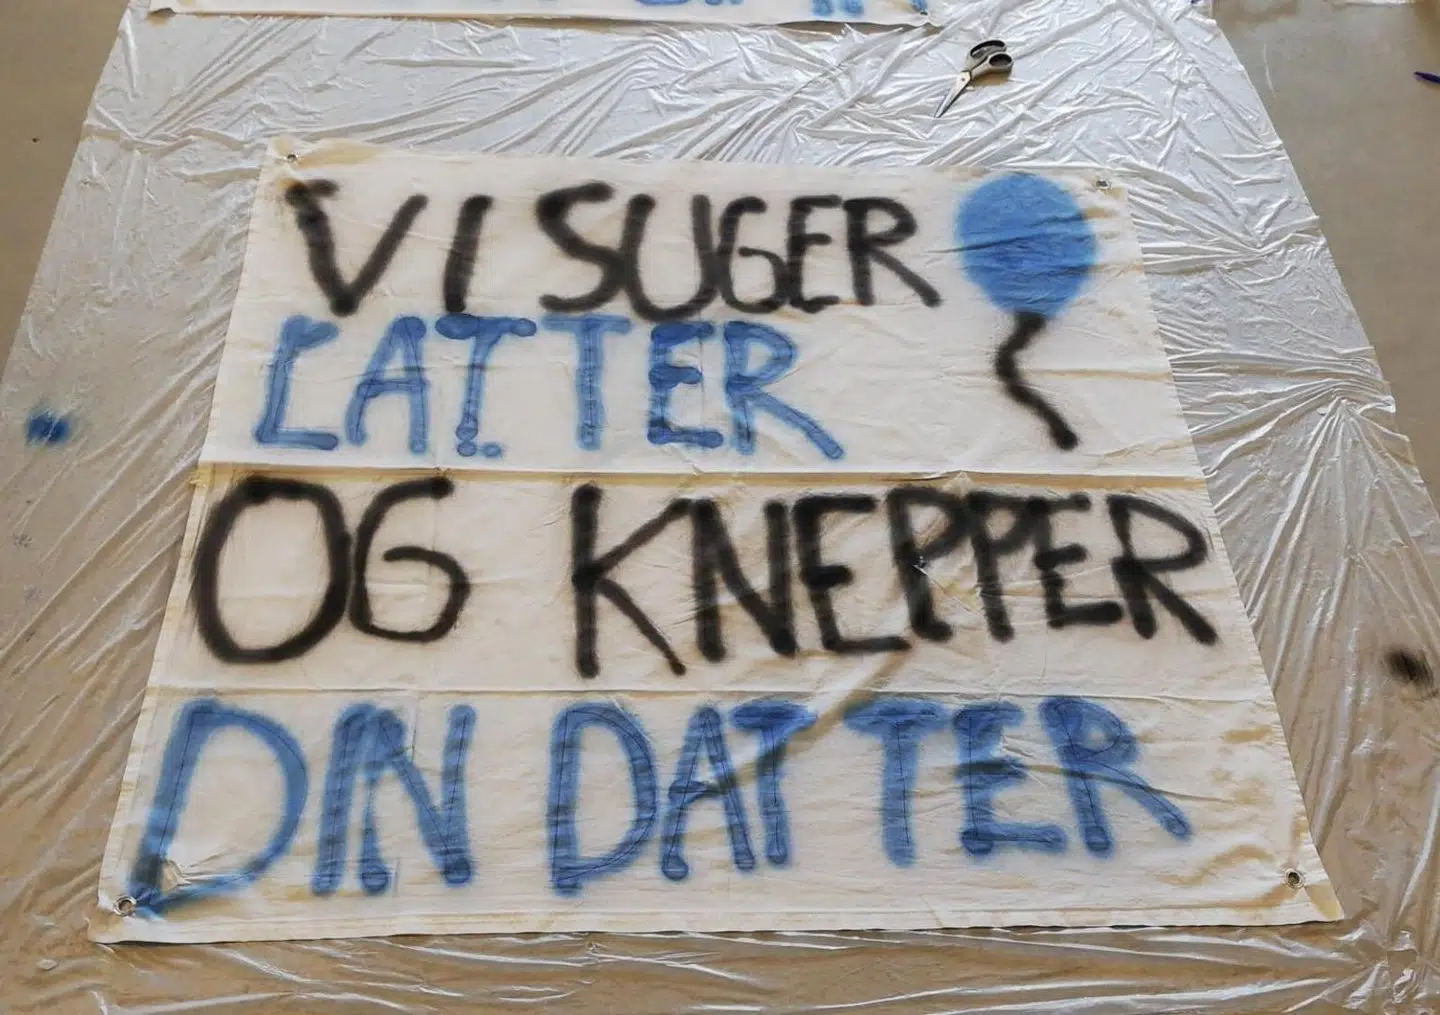 VI SUGER
LATTER
OG KNEPPER
DIN DATTER